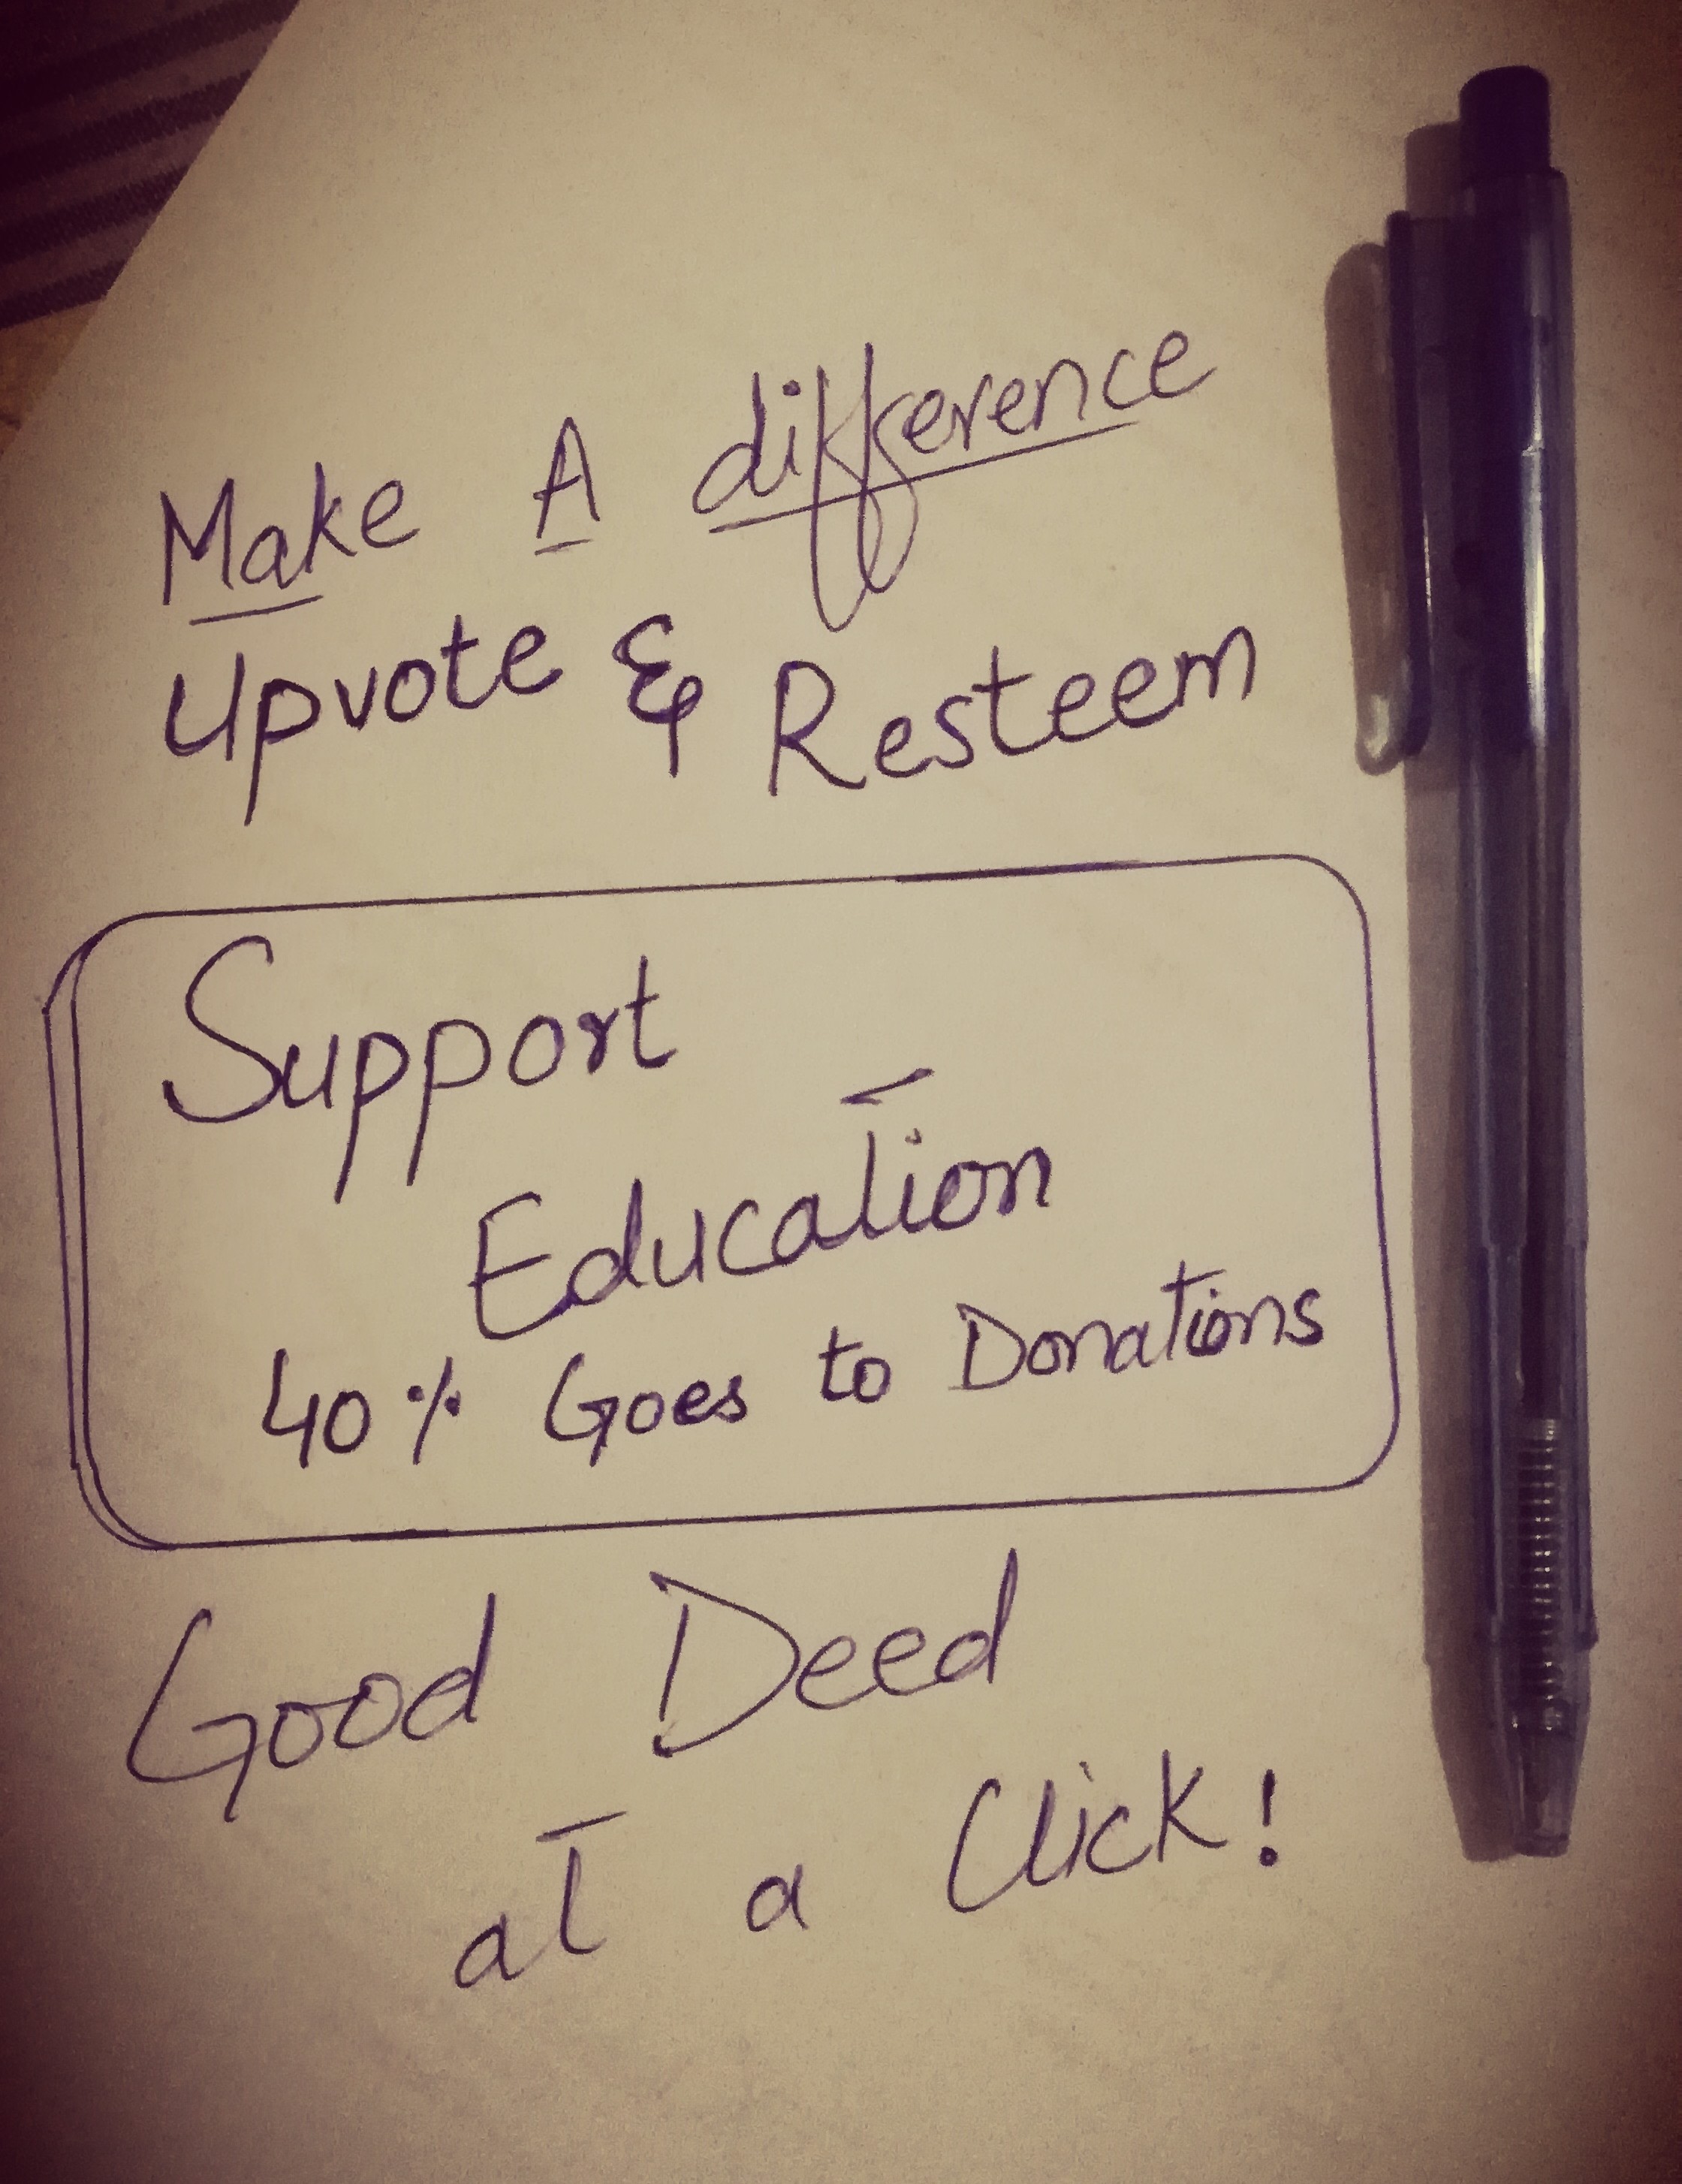 Make A difference
Upvote & Resteem
Support
Education
40% Goes to Donations
Good Deed
at a Click!